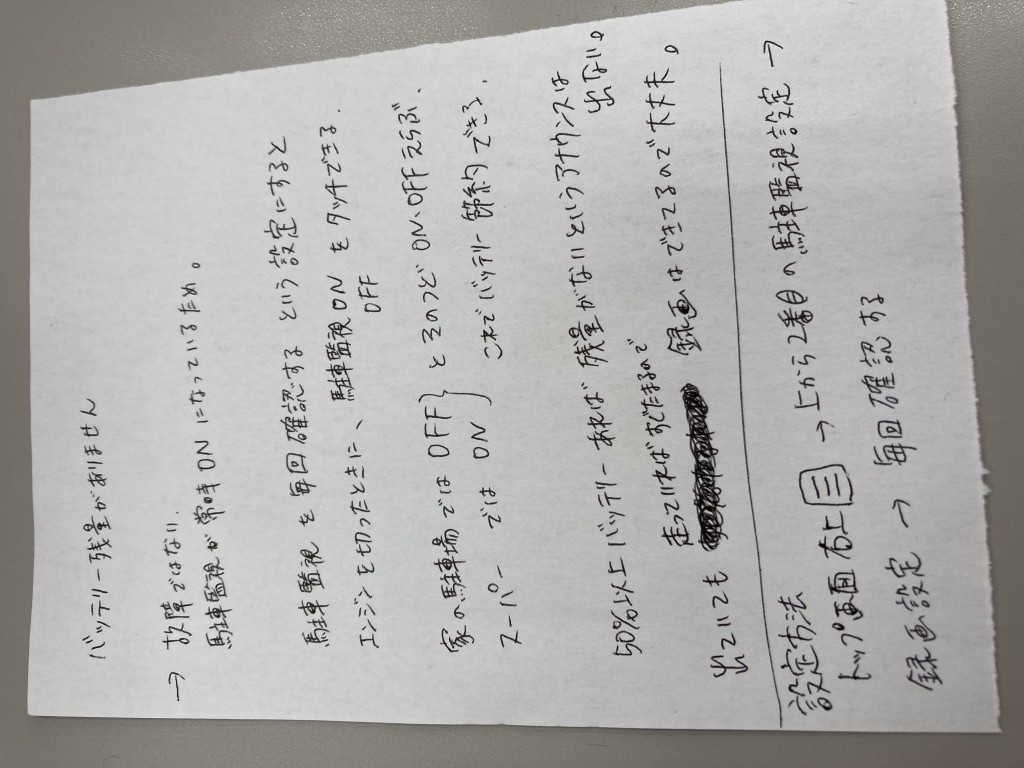 バッテリー残量がありません
→ 故障ではない.
駐車監視が常時ONになっているため。
駐車監視を毎回確認する という設定にすると
エンジンを切ったときに、駐車監視ON をタッチできる.
OFF
家の駐車場ではOFF } とそのつど ON、OFFえらぶ、
スーパー ではON これでバッテリー節約できる.
50%以上バッテリーあれば残量がないというアナウンスは
出ない。
走っていればまたたまるので
出ていても 録画はできてるので大丈夫。
設定方法
トップ画面右上 ☰ → 上から2番目の駐車監視設定 →
録画設定 → 毎回確認する